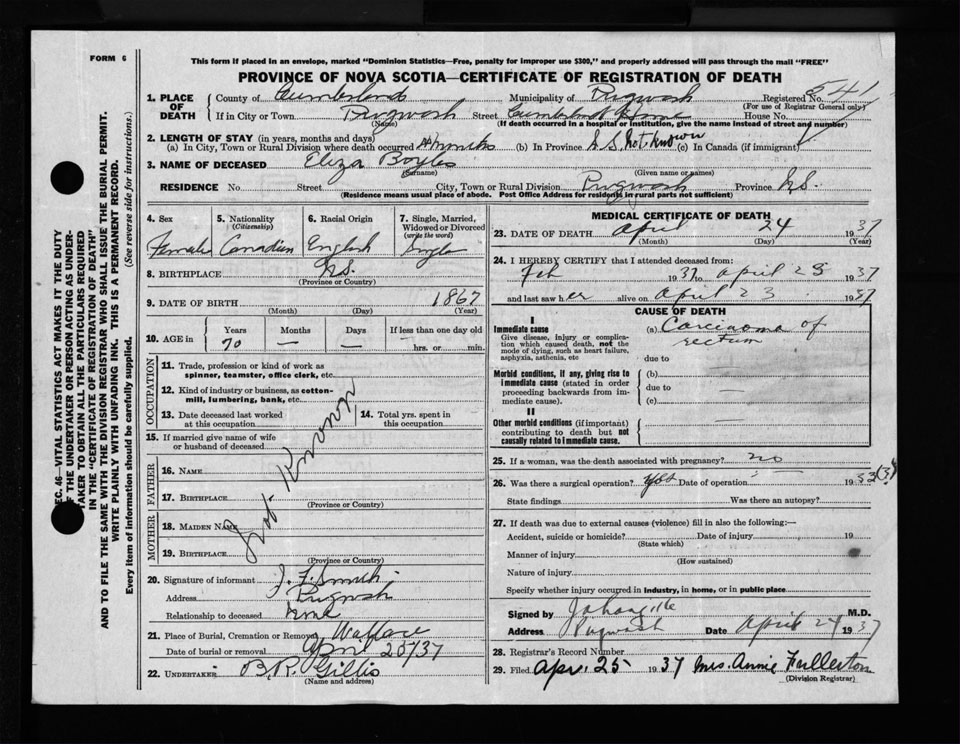 FORM 6
This form if placed in an envelope, marked "Dominion Statistics—Free, penalty for improper use $300," and properly addressed will pass through the mail "FREE"
PROVINCE OF NOVA SCOTIA—CERTIFICATE OF REGISTRATION OF DEATH
1. PLACE OF DEATH County of Cumberland Municipality of Pugwash Registered No. 541
(For use of Registrar General only)
If in City or Town Pugwash Street Cumberland Home House No.
(Name) (If death occurred in a hospital or institution, give the name instead of street and number)
2. LENGTH OF STAY (in years, months and days)
(a) In City, Town or Rural Division where death occurred months (b) In Province N.S. Not Known (c) In Canada (if immigrant)
3. NAME OF DECEASED Eliza Boyles
(Surname) (Given name or names)
RESIDENCE No. Street City, Town or Rural Division Pugwash Province N.S.
(Residence means usual place of abode. Post Office Address for residents in rural parts not sufficient)
4. Sex 5. Nationality 6. Racial Origin 7. Single, Married, Widowed or Divorced
(Citizenship) (write the word)
Female Canadian English Single
8. BIRTHPLACE N.S.
(Province or Country)
9. DATE OF BIRTH 1867
(Month) (Day) (Year)
10. AGE in Years Months Days If less than one day old
70 — — hrs. or min.
OCCUPATION
11. Trade, profession or kind of work as spinner, teamster, office clerk, etc.
12. Kind of industry or business, as cotton-mill, lumbering, bank, etc.
13. Date deceased last worked at this occupation
14. Total yrs. spent in this occupation
15. If married give name of wife or husband of deceased
Not Known
FATHER
16. NAME
17. BIRTHPLACE
(Province or Country)
MOTHER
18. MAIDEN NAME
19. BIRTHPLACE
(Province or Country)
20. Signature of informant J. F. Smith
Address Pugwash
Relationship to deceased none
21. Place of Burial, Cremation or Removal Wallace
Date of burial or removal April 25/37
22. UNDERTAKER B.R. Gillis
(Name and address)
MEDICAL CERTIFICATE OF DEATH
23. DATE OF DEATH April 24 1937
(Month) (Day) (Year)
24. I HEREBY CERTIFY that I attended deceased from:
Feb 1937 to April 23 1937
and last saw her alive on April 23 1937
CAUSE OF DEATH
I
Immediate cause (a) Carcinoma of rectum
Give disease, injury or complication which caused death, not the mode of dying, such as heart failure, asphyxia, asthenia, etc
due to
Morbid conditions, if any, giving rise to immediate cause (stated in order proceeding backwards from immediate cause). (b)
due to
(c)
II
Other morbid conditions (if important) contributing to death but not causally related to immediate cause.
25. If a woman, was the death associated with pregnancy? no
26. Was there a surgical operation? Yes Date of operation 1932 (3)
State findings Was there an autopsy?
27. If death was due to external causes (violence) fill in also the following:—
Accident, suicide or homicide? Date of injury 19
(State which)
Manner of injury
(How sustained)
Nature of injury
Specify whether injury occurred in industry, in home, or in public place
Signed by M.D.
Address Pugwash Date April 24 1937
28. Registrar's Record Number
29. Filed Apr. 25 1937 Mrs. Annie Fullerton
(Division Registrar)
SEC. 46—VITAL STATISTICS ACT MAKES IT THE DUTY
OF THE UNDERTAKER OR PERSON ACTING AS UNDER-
TAKER TO OBTAIN ALL THE PARTICULARS REQUIRED
IN THE "CERTIFICATE OF REGISTRATION OF DEATH"
AND TO FILE THE SAME WITH THE DIVISION REGISTRAR WHO SHALL ISSUE THE BURIAL PERMIT.
WRITE PLAINLY WITH UNFADING INK. THIS IS A PERMANENT RECORD.
Every item of information should be carefully supplied. (See reverse side for instructions.)